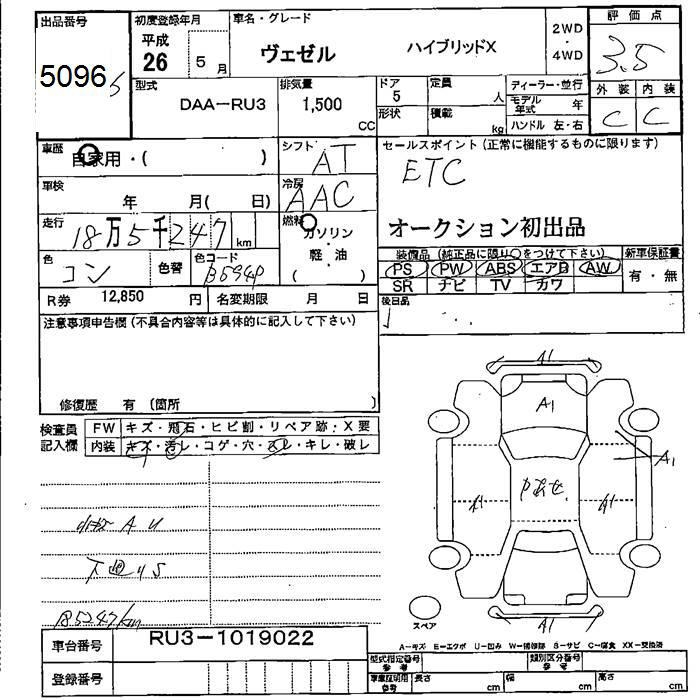 出品番号 初度登録年月 車名・グレード 評価点
5096 平成 26 5月 ヴェゼル ハイブリッドX 2WD・4WD 3.5
型式 DAA-RU3 排気量 1,500 CC ドア 5 定員 人 ディーラー・並行 外装 内装
形状 積載 kg モデル年式 年 C C
ハンドル 左・右
車歴 自家用・( ) シフト AT セールスポイント(正常に機能するものに限ります)
車検 年 月( 日) 冷房 AAC ETC
走行 18万5千247 km 燃料 ガソリン・軽油( ) オークション初出品
色 コン 色替 色コード B594P 装備品(純正品に限り○をつけて下さい) 新車保証書
PS PW ABS エアB AW 有・無
R券 12,850 円 名変期限 月 日 SR ナビ TV カワ
注意事項申告欄(不具合内容等は具体的に記入して下さい) 後日品
修復歴 有 (箇所 )
検査員記入欄 FW キズ・飛石・ヒビ割・リペア跡・X要
内装 キズ・汚レ・コゲ・穴・スレ・キレ・破レ
A1
A1
A1
A1
A1
A1
小キズ A U
下廻りS
185247km
スペア
車台番号 RU3-1019022 A-キズ E-エクボ U-凹み W-補修跡 S-サビ C-腐食 XX-交換済
登録番号 型式指定番号 参考 類別区分番号 参考
車庫証明用 参考 長さ cm 幅 cm 高さ cm